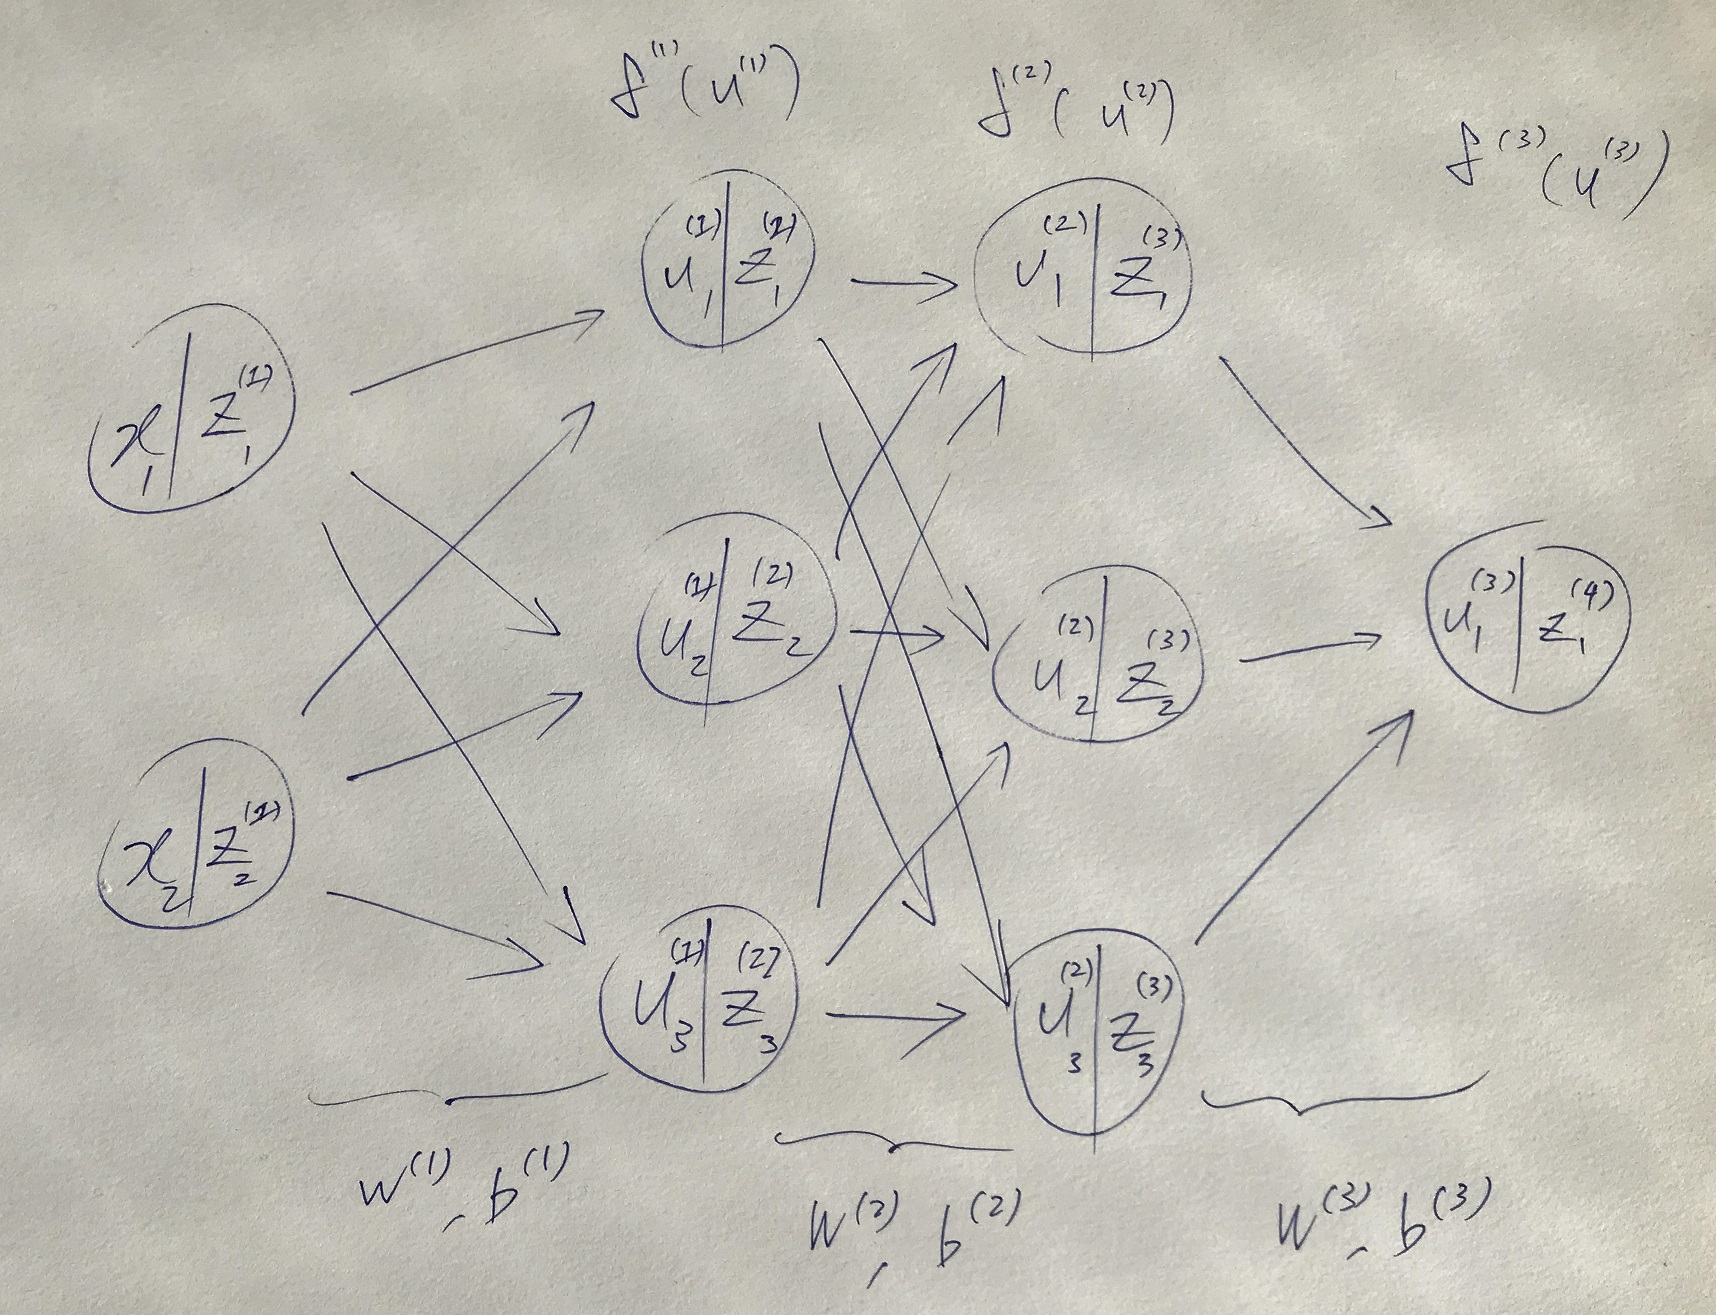 f^(1)(u^(1))
f^(2)(u^(2))
f^(3)(u^(3))
x_1 | z_1^(1)
x_2 | z_2^(1)
u_1^(1) | z_1^(2)
u_2^(1) | z_2^(2)
u_3^(1) | z_3^(2)
u_1^(2) | z_1^(3)
u_2^(2) | z_2^(3)
u_3^(2) | z_3^(3)
u_1^(3) | z_1^(4)
w^(1), b^(1)
W^(2), b^(2)
W^(3), b^(3)